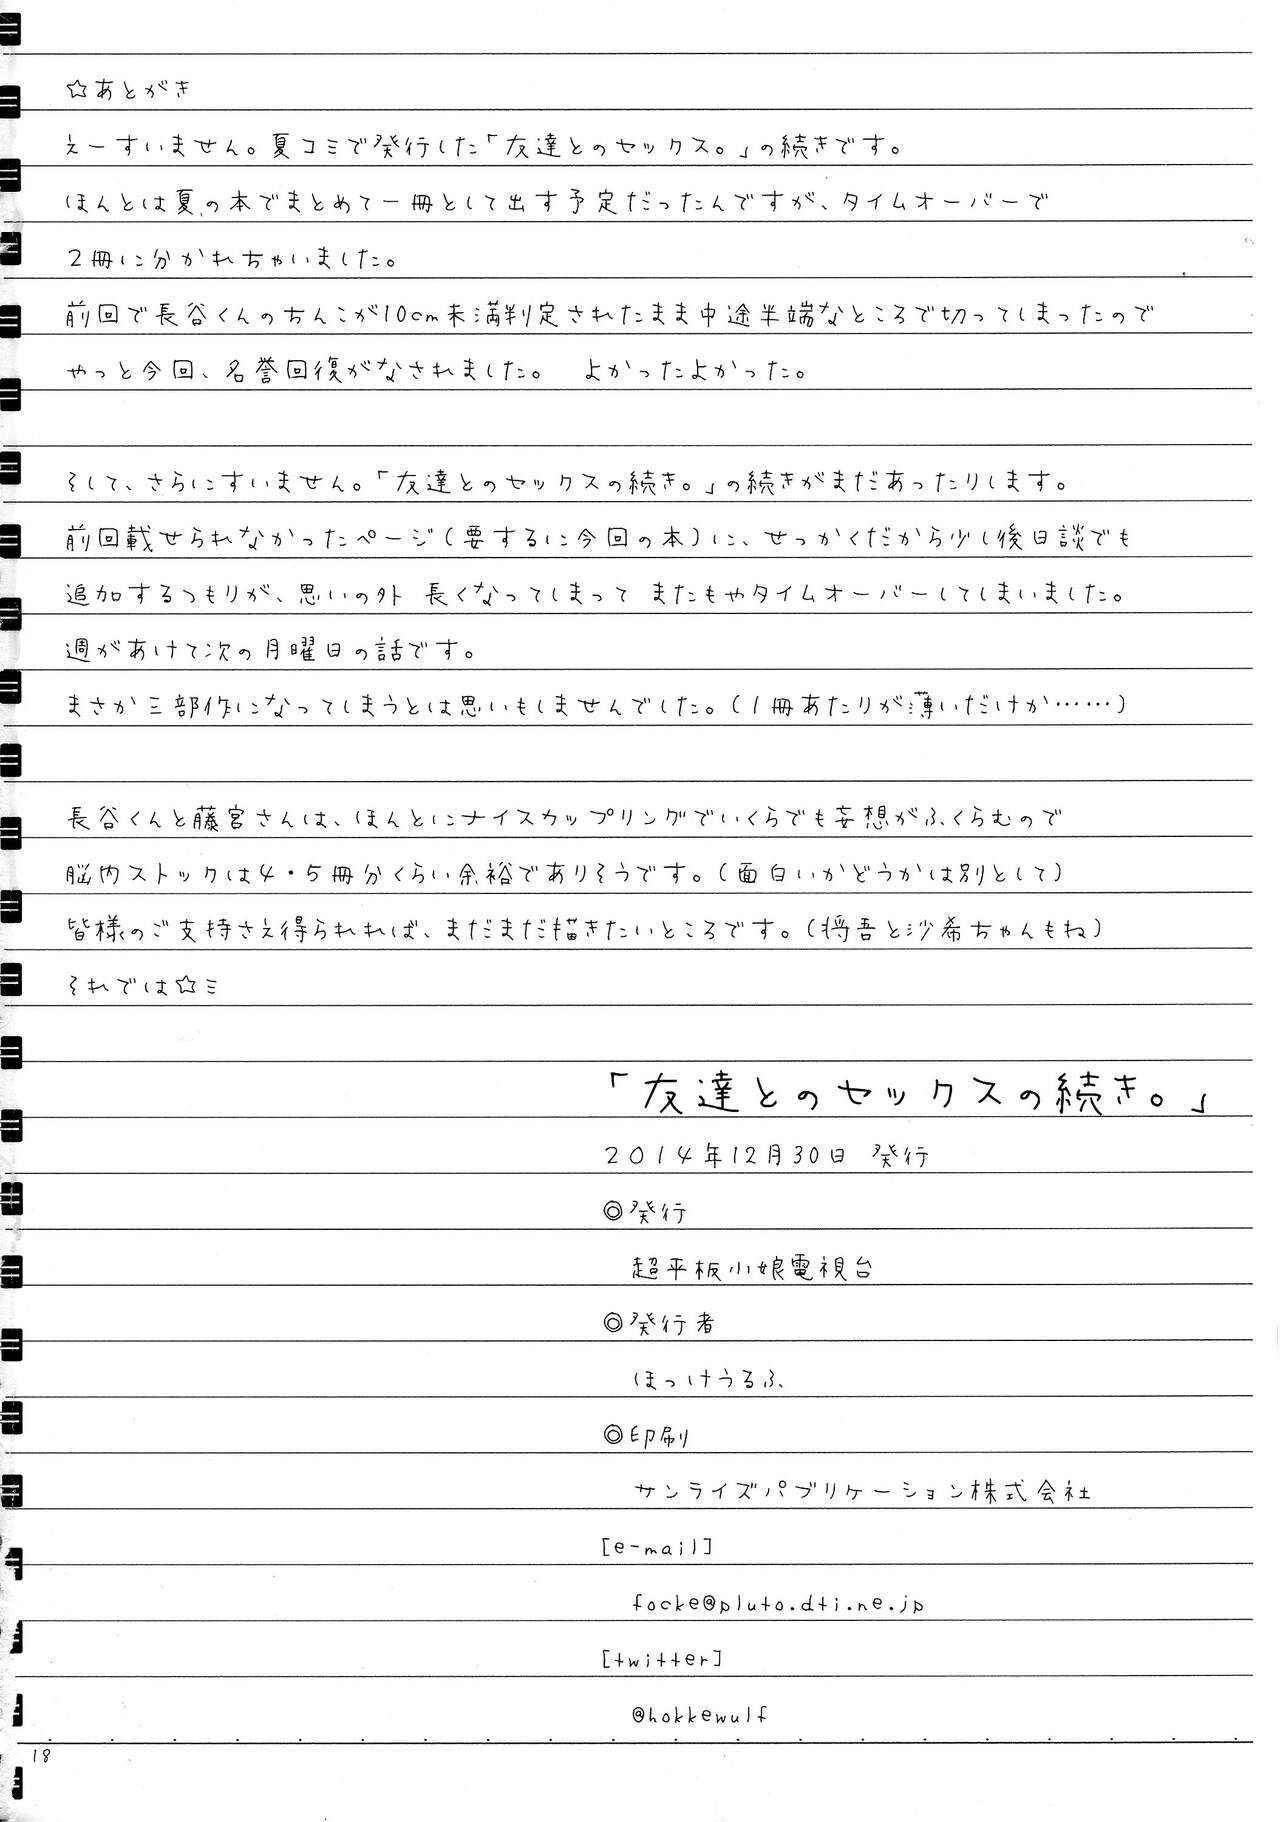 ☆あとがき
えーすいません。夏コミで発行した「友達とのセックス。」の続きです。
ほんとは夏の本でまとめて一冊として出す予定だったんですが、タイムオーバーで
2冊に分かれちゃいました。
前回で長谷くんのちんこが10cm未満判定されたまま中途半端なところで切ってしまったので
やっと今回、名誉回復がなされました。　よかったよかった。
そして、さらにすいません。「友達とのセックスの続き。」の続きがまだあったりします。
前回載せられなかったページ(要するに今回の本)に、せっかくだから少し後日談でも
追加するつもりが、思いの外 長くなってしまって またもやタイムオーバーしてしまいました。
週があけて次の月曜日の話です。
まさか三部作になってしまうとは思いもしませんでした。(1冊あたりが薄いだけか……)
長谷くんと藤宮さんは、ほんとにナイスカップリングでいくらでも妄想がふくらむので
脳内ストックは4・5冊分くらい余裕でありそうです。(面白いかどうかは別として)
皆様のご支持さえ得られれば、まだまだ描きたいところです。(将吾と沙希ちゃんもね)
それでは☆ミ
「友達とのセックスの続き。」
2014年12月30日 発行
◎発行
超平板小娘電視台
◎発行者
ほっけうるふ
◎印刷
サンライズパブリケーション株式会社
[e-mail]
focke@pluto.dti.ne.jp
[twitter]
@hokkewulf
18